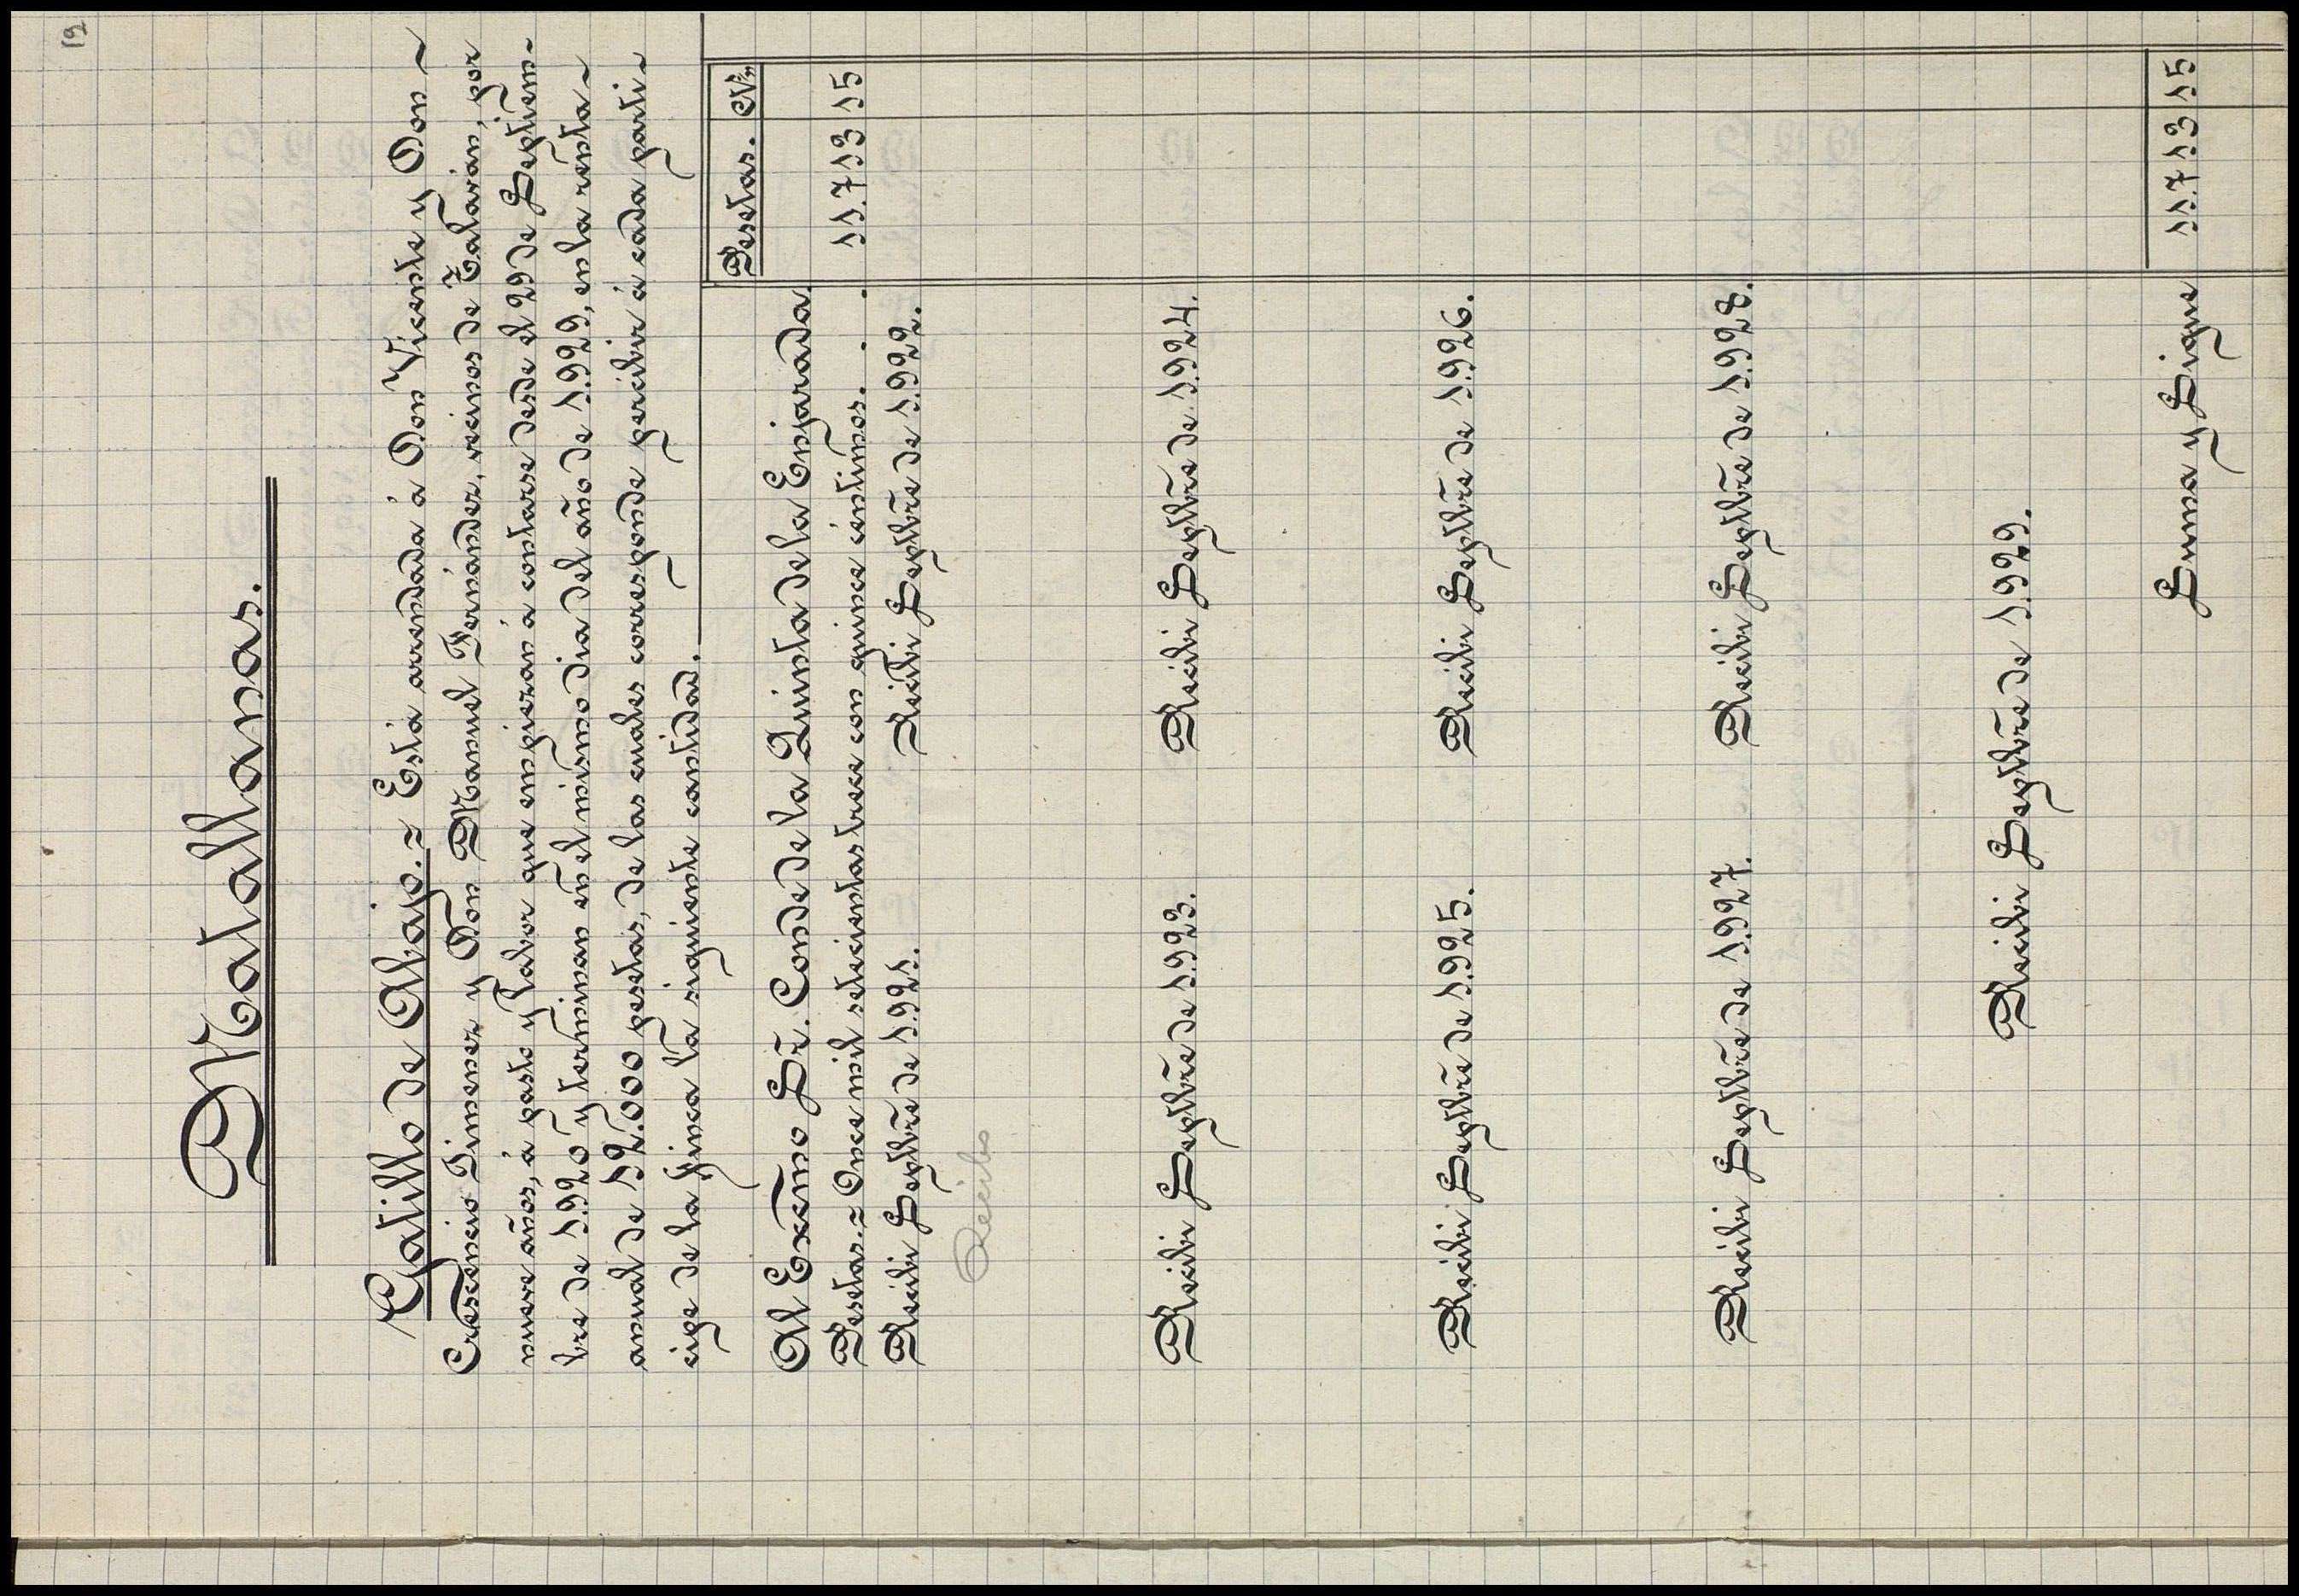 19
Matallanas.
Gatillo de Abajo. = Está arrendada á Don Vicente y Don ~
Crescencio Jimenez y Don Manuel Fernández, vecinos de Talaván, por
nueve años, á pasto y labor que empiezan á contarse desde el 29 de Septiem-
bre de 1.920 y terminan en el mismo dia del año de 1.929, en la renta ~
anual de 12.000 pesetas, de las cuales corresponde percibir á cada parti-
cipe de la finca la siguiente cantidad.
Pesetas. Cts.
Al Excmo Sr. Conde de la Quinta de la Enjarada.
Pesetas. = Once mil setecientas trece con quince céntimos. . . 11.713 15
Recibi Septbre de 1.921. Recibi Septbre de 1.922.
Recibo
Recibi Septbre de 1.923. Recibi Septbre de 1.924.
Recibi Septbre de 1.925. Recibi Septbre de 1.926.
Recibi Septbre de 1.927. Recibi Septbre de 1.928.
Recibi Septbre de 1.929.
Suma y Sigue 11.713 15